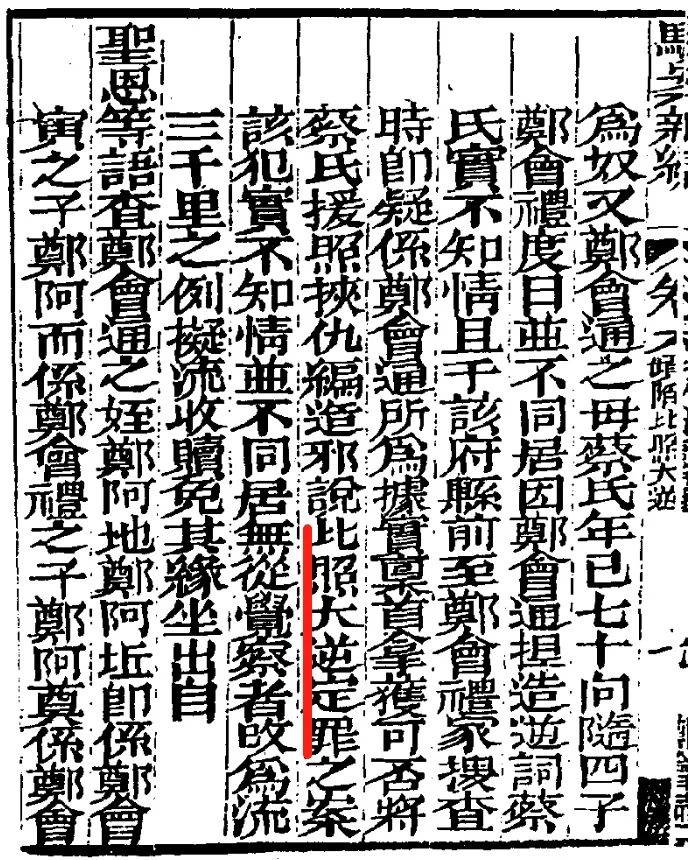 駁案新編 卷 比照大逆
為奴又鄭會通之母蔡氏年已七十向隨四子
鄭會禮度日並不同居因鄭會通捏造逆詞蔡
氏實不知情且于該府縣前至鄭會禮家搜查
時卽疑係鄭會通所為據實稟首拿獲可否將
蔡氏援照挾仇編造邪說比照大逆定罪之案
該犯實不知情並不同居無從覺察者改為流
三千里之例擬流收贖免其緣坐出自
聖恩等語查鄭會通之姪鄭阿地鄭阿坵卽係鄭會
寅之子鄭阿而係鄭會禮之子鄭阿奠係鄭會